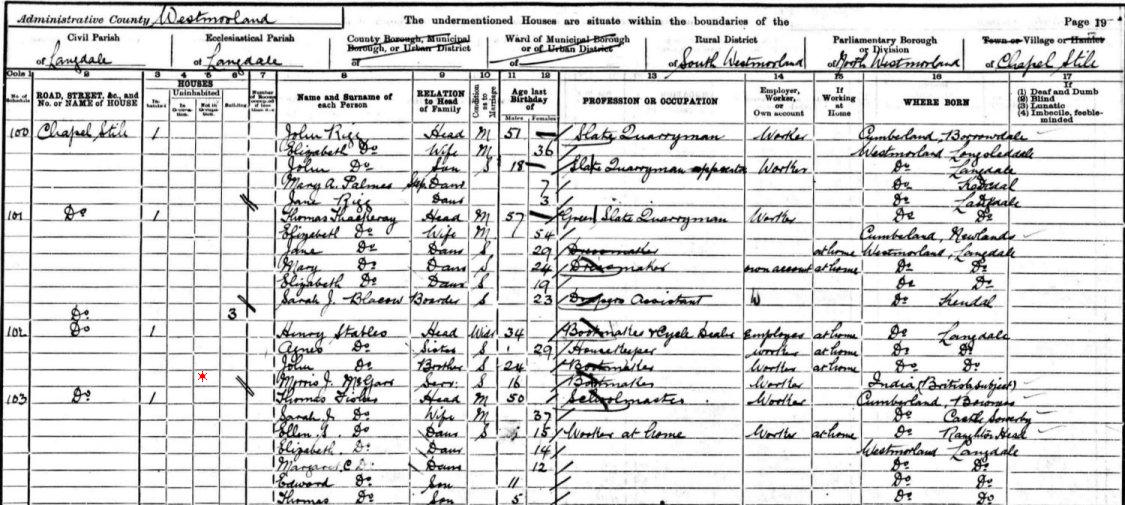 Administrative County Westmorland The undermentioned Houses are situate within the boundaries of the Page 19
Civil Parish Ecclesiastical Parish County Borough, Municipal Borough, or Urban District Ward of Municipal Borough or of Urban District Rural District Parliamentary Borough or Division Town or Village or Hamlet
of Langdale of Langdale of South Westmorland of North Westmorland of Chapel Stile
Cols 1 2 3 4 5 6 7 8 9 10 11 12 13 14 15 16 17
No. of Schedule ROAD, STREET, &c., and No. or NAME of HOUSE HOUSES Inhabited Uninhabited In Occupation Not in Occupation Building Name and Surname of each Person RELATION to Head of Family Condition as to Marriage Age last Birthday of Males Females PROFESSION OR OCCUPATION Employer, Worker, or Own account If Working at Home WHERE BORN If (1) Deaf and Dumb (2) Blind (3) Lunatic (4) Imbecile, feeble-minded
100 Chapel Stile 1 John Rigg Head M 51 Slate Quarryman Worker Cumberland, Borrowdale
Elizabeth Do Wife M 36 Westmorland, Longsleddale
John Do Son S 18 Slate Quarryman apprentice Worker Do Langdale
Mary A. Palmer Step Daur 7 Do Kendal
Jane Rigg Daur 3 Do Langdale
101 Do 1 Thomas Thackeray Head M 57 Green Slate Quarryman Worker Do Do
Elizabeth Do Wife M 54 Cumberland, Newlands
Jane Do Daur S 29 Dressmaker at home Westmorland, Langdale
Mary Do Daur S 24 Dressmaker own account at home Do Do
Elizabeth Do Daur S 19 Do Do
Sarah J. Blacow Boarder S 23 Drapers Assistant W Do Kendal
Do 3
102 Do 1 Henry Stables Head Widr 34 Bootmaker & Cycle Dealer Employer at home Do Langdale
Agnes Do Sister S 29 Housekeeper Worker at home Do Do
John Do Brother S 24 Bootmaker Worker at home Do Do
Morris J. McGarr Serv: S 16 Bootmaker Worker India (British Subject)
103 Do 1 Thomas Fisher Head M 50 Schoolmaster Worker Cumberland, Bowness
Sarah J. Do Wife M 37 Do Castle Sowerby
Ellen J. Do Daur S 15 Worker at home Worker at home Do Head
Elizabeth Do Daur 14 Westmorland Langdale
Margaret C Do Daur 12 Do Do
Edward Do Son 11 Do Do
Thomas Do Son 5 Do Do